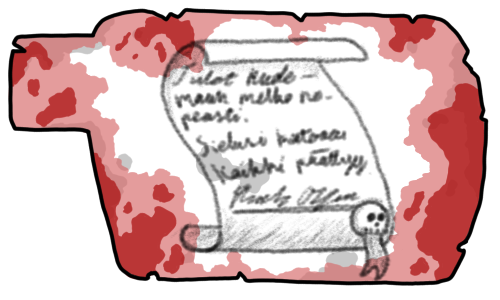 Tulet kuole-
maan melko no-
peasti.
Sieluni katoaa
kaikki päättyy